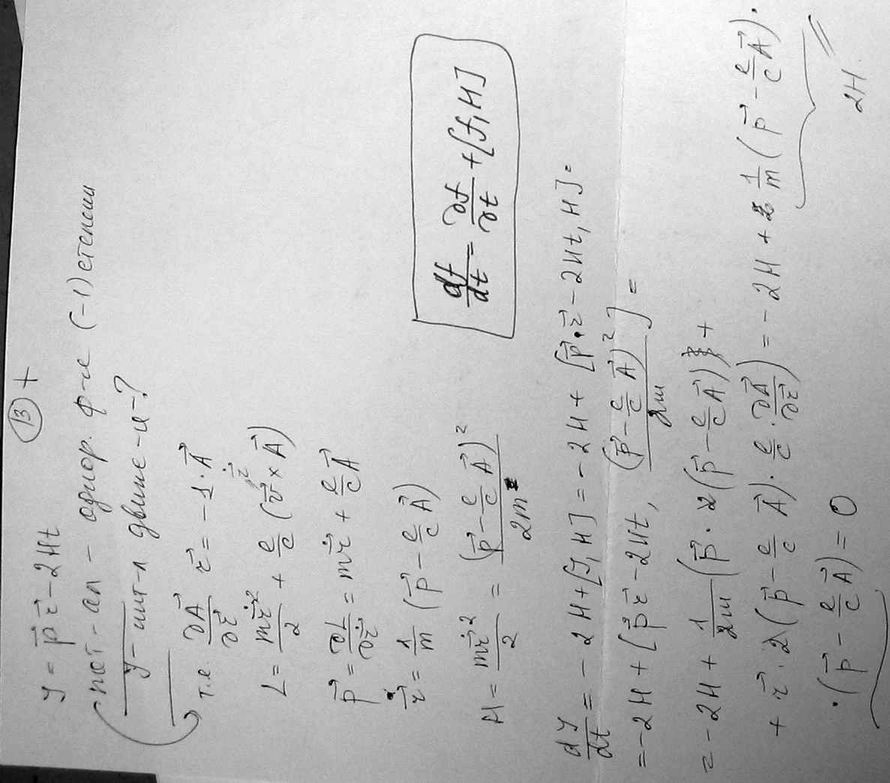 (13) +
y = p⃗ r⃗ − 2Ht
пот-ал − однор. ф-ия (−1) степени
y − инт-л движе-я − ?
т.е ∂A⃗/∂r⃗ r⃗ = −1·A⃗
L = mṙ²/2 + e/c (v⃗ × A⃗)
p⃗ = ∂L/∂ṙ⃗ = mṙ⃗ + e/c A⃗
ṙ⃗ = 1/m (p⃗ − e/c A⃗)
H = mṙ²/2 = (p⃗ − e/c A⃗)²/2m
df/dt = ∂f/∂t + [f, H]
dy/dt = −2H + [y, H] = −2H + [p⃗·r⃗ − 2Ht, H] =
= −2H + [p⃗ r⃗ − 2Ht, (p⃗ − e/c A⃗)²/2m] =
= −2H + 1/2m (p⃗ · 2(p⃗ − e/c A⃗)) +
+ r⃗ · 2(p⃗ − e/c A⃗) · e/c · ∂A⃗/∂r⃗) = −2H + 1/m (p⃗ − e/c A⃗) ·
· (p⃗ − e/c A⃗) = 0
2H